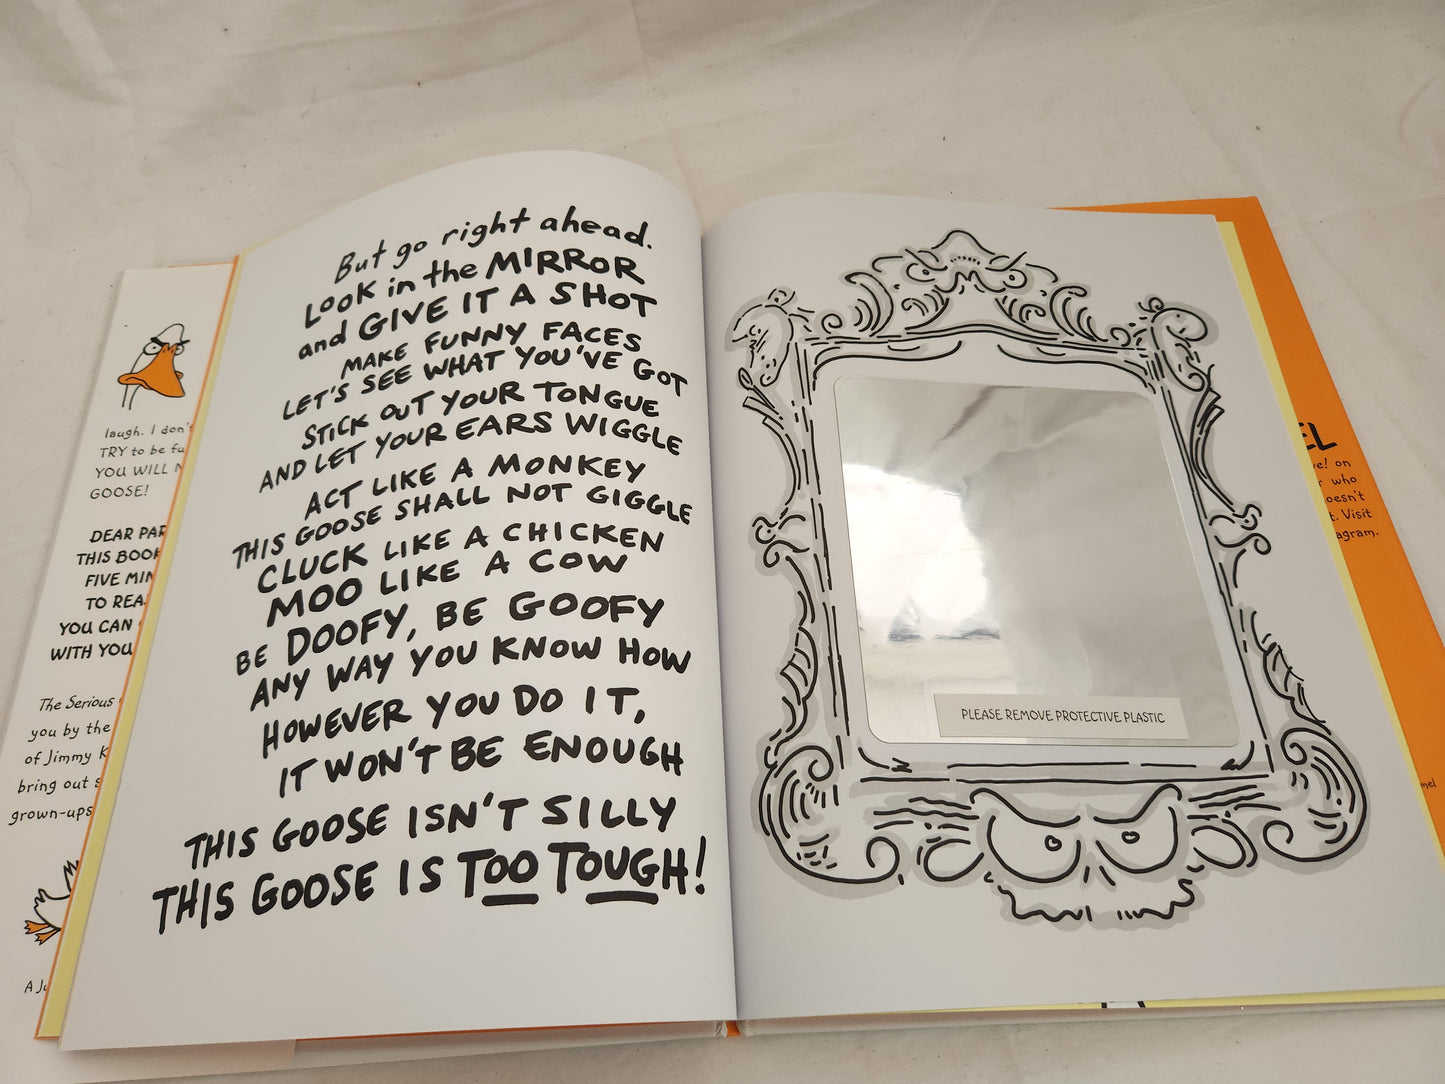 laugh. I don't
TRY to be fu
YOU WILL N
GOOSE!
DEAR PAR
THIS BOOK
FIVE MIN
TO REA
YOU CAN
WITH YOU
The Serious
you by the
of Jimmy K
bring out s
grown-ups
A Ju
But go right ahead.
Look in the MIRROR
and GIVE IT A SHOT
MAKE FUNNY FACES
LET'S SEE WHAT YOU'VE GOT
STICK OUT YOUR TONGUE
AND LET YOUR EARS WIGGLE
ACT LIKE A MONKEY
THIS GOOSE SHALL NOT GIGGLE
CLUCK LIKE A CHICKEN
MOO LIKE A COW
BE DOOFY, BE GOOFY
ANY WAY YOU KNOW HOW
HOWEVER YOU DO IT,
IT WON'T BE ENOUGH
THIS GOOSE ISN'T SILLY
THIS GOOSE IS TOO TOUGH!
PLEASE REMOVE PROTECTIVE PLASTIC
EL
ve! on
r who
oesn't
t. Visit
agram.
mel